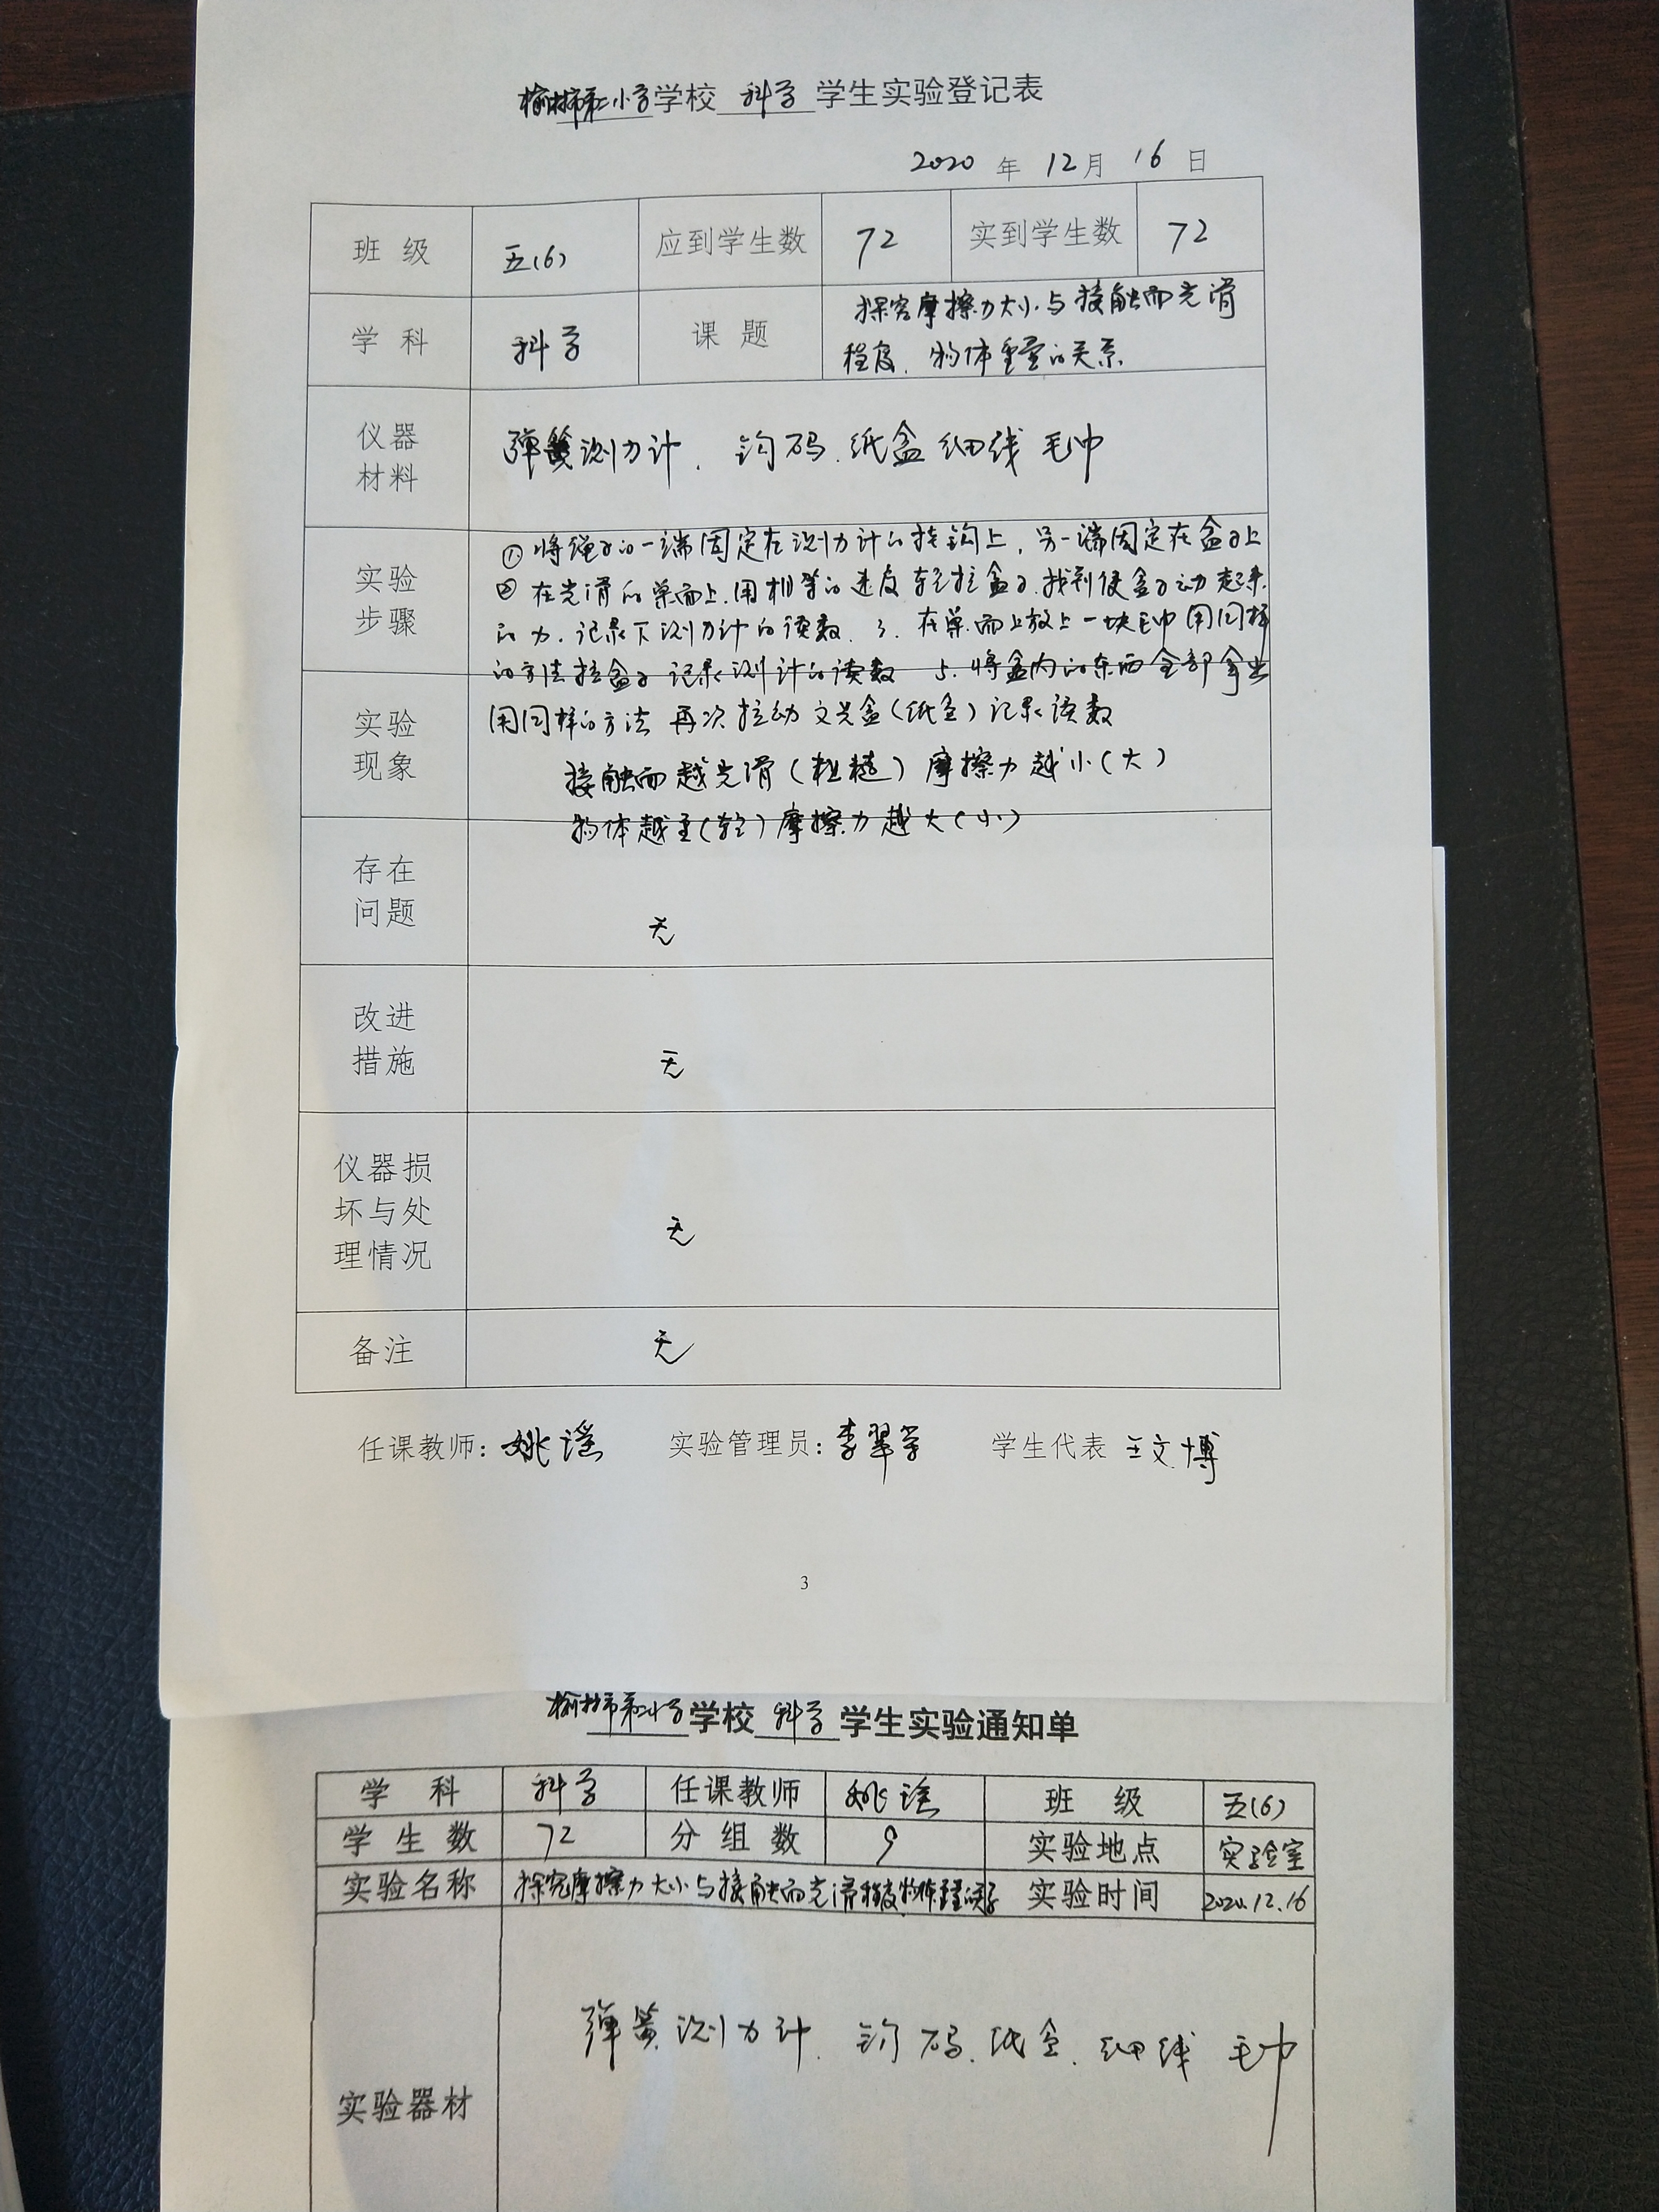 榆林市第二小学学校 科学 学生实验登记表
2020 年 12月 16 日
班 级 五(6) 应到学生数 72 实到学生数 72
学 科 科学 课 题 探究摩擦力大小与接触面光滑
程度、物体重量的关系
仪器
材料
弹簧测力计、钩码、纸盒 细线 毛巾
实验
步骤
①将绳子的一端固定在测力计的挂钩上,另一端固定在盒子上
②在光滑的桌面上,用相等的速度轻拉盒子,找到使盒子动起来
的力,记录下测力计的读数、3、在桌面上放上一块毛巾用同样
的方法拉盒子记录测计的读数 5、将盒内的东西全部拿出
实验
现象
用同样的方法 再次拉动文具盒(纸盒)记录读数
接触面越光滑(粗糙)摩擦力越小(大)
物体越重(轻)摩擦力越大(小)
存在
问题
无
改进
措施
无
仪器损
坏与处
理情况
无
备注 无
任课教师:姚谣 实验管理员:李翠学 学生代表 王文博
3
榆林市第二小学学校 科学 学生实验通知单
学 科 科学 任课教师 姚谣 班 级 五(6)
学生数 72 分组数 9 实验地点 实验室
实验名称 探究摩擦力大小与接触面光滑程度物体重量的关系 实验时间 2020.12.16
实验器材 弹簧测力计、钩码、纸盒、细线 毛巾